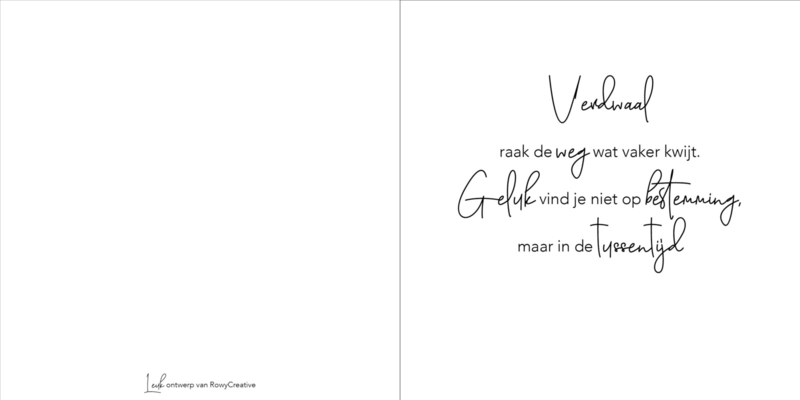 Verdwaal
raak de weg wat vaker kwijt.
Geluk vind je niet op bestemming,
maar in de tussentijd
Leuk ontwerp van RowyCreative